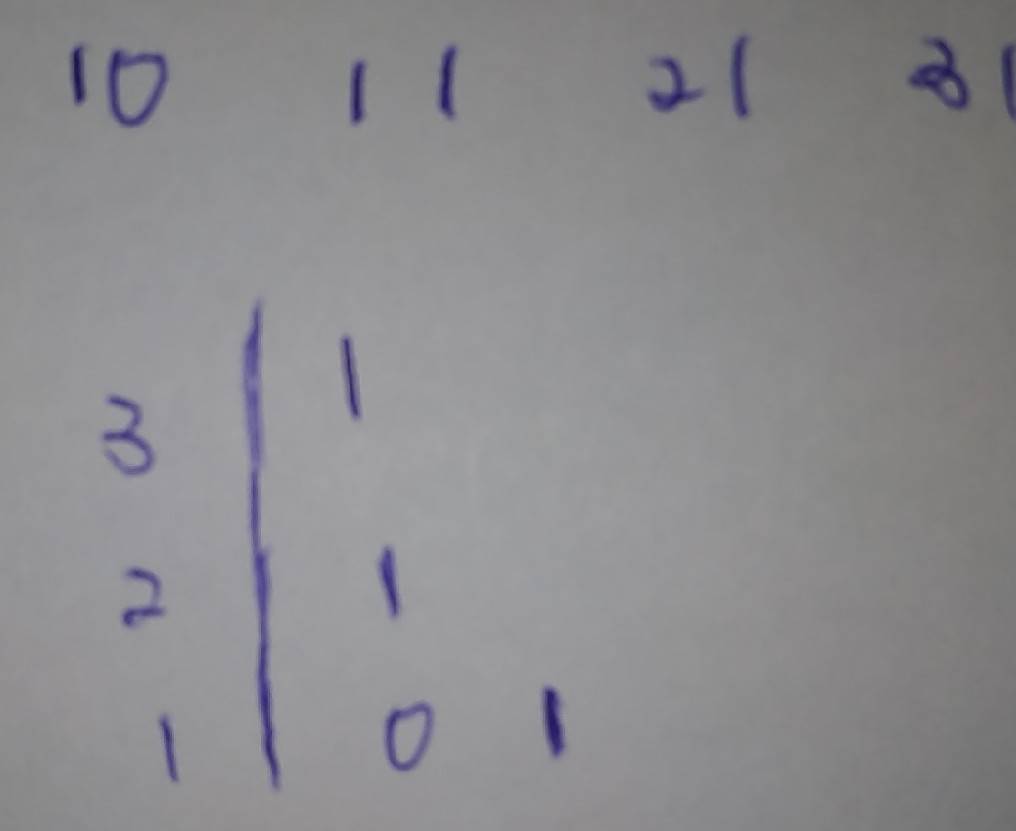 10 11 21 31
3 | 1
2 | 1
1 | 0 1